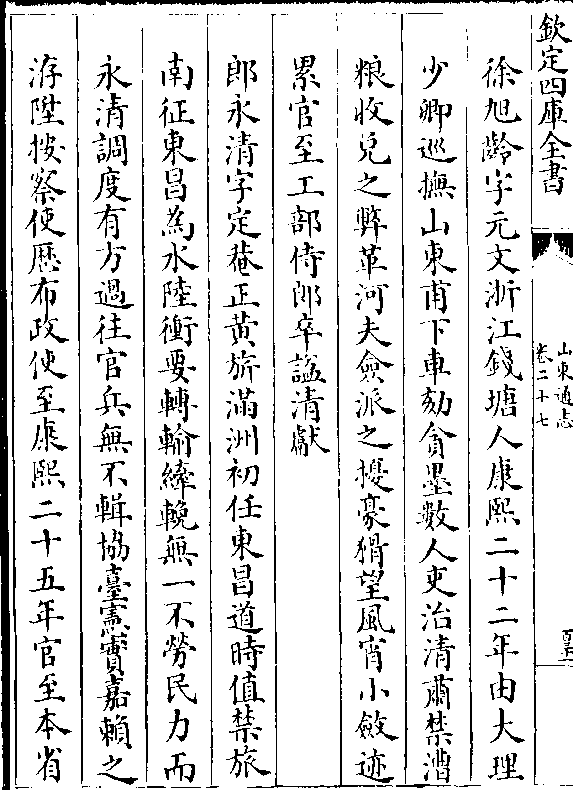 欽定四庫全書
山東通志
卷二十七
徐旭齡字元文浙江錢塘人康熙二十二年由大理
少卿巡撫山東甫下車劾貪墨數人吏治清肅禁漕
粮收兌之弊革河夫僉派之擾豪猾望風宵小斂迹
累官至工部侍郎卒諡清獻
郎永清字定菴正黄旂滿洲初任東昌道時值禁旅
南征東昌為水陸衝要轉輸縴輓無一不勞民力而
永清調度有方過往官兵無不輯協臺憲實嘉賴之
洊陞按察使歷布政使至康熙二十五年官至本省